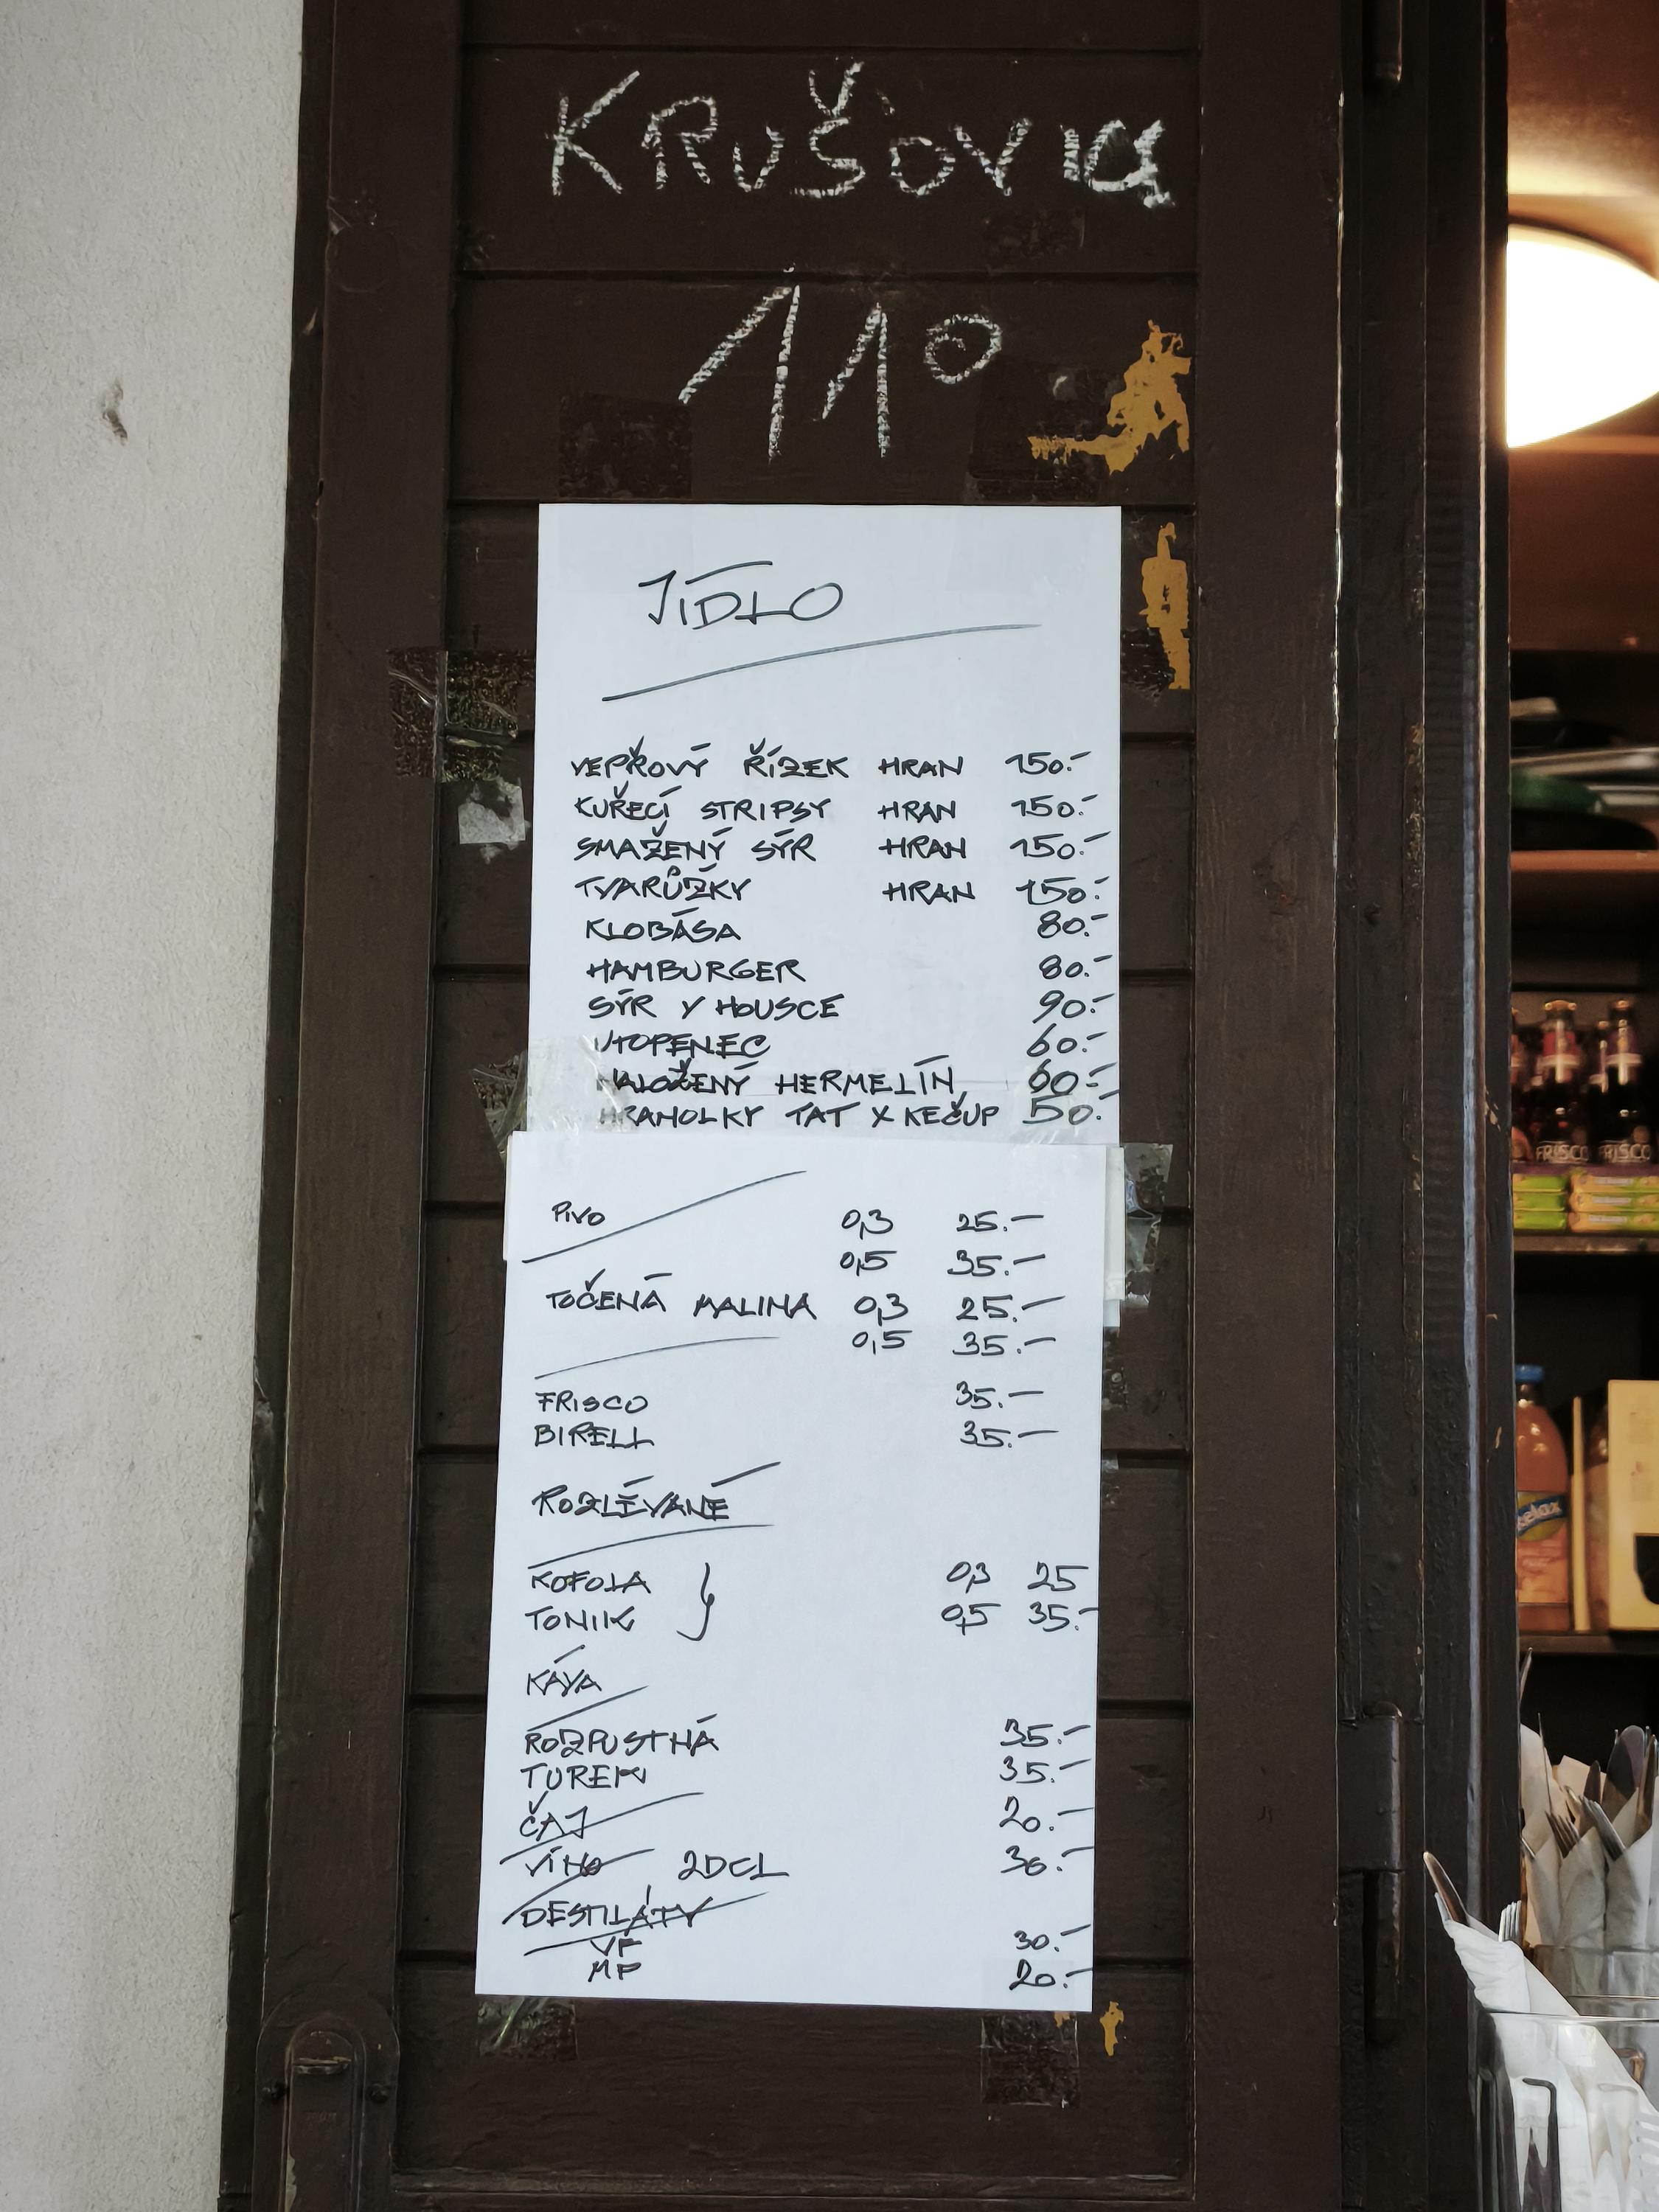 KRUŠOVICE
11°
JÍDLO
VEPŘOVÝ ŘÍZEK HRAN 150.-
KUŘECÍ STRIPSY HRAN 150.-
SMAŽENÝ SÝR HRAN 150.-
TVARŮŽKY HRAN 150.-
KLOBÁSA 80.-
HAMBURGER 80.-
SÝR V HOUSCE 90.-
UTOPENEC 60.-
NALOŽENÝ HERMELÍN 60.-
HRANOLKY TAT X KEČUP 50.-
PIVO 0,3 25.-
0,5 35.-
TOČENÁ MALINA 0,3 25.-
0,5 35.-
FRISCO 35.-
BIRELL 35.-
ROZLÉVANÉ
KOFOLA } 0,3 25
TONIK 0,5 35.-
KÁVA
ROZPUSTNÁ 35.-
TUREK 35.-
ČAJ 20.-
VÍNO 2DCL 30.-
DESTILÁTY
VF 30.-
MP 20.-
FRISCO
FRISCO
Relax